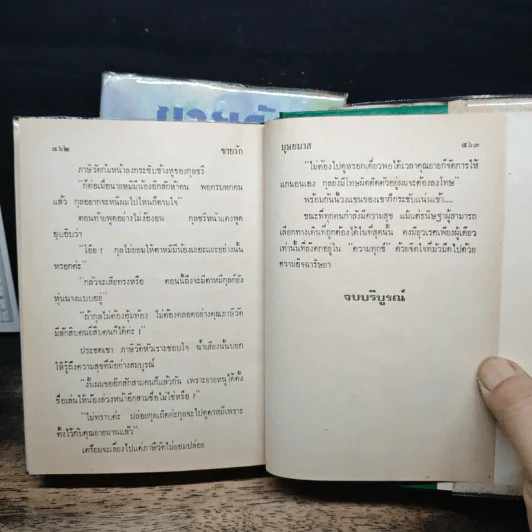 ๘๖๒ ชายรัก
ภาษิวัตก้มหน้าลงกระซิบข้างหูของกุลชรี
"ก็ต่อเมื่อนายหมีมีน้องอีกสักห้าคน พอครบหกคน
แล้ว กุลอยากจะหนีผมไปไหนก็ตามใจ"
ตอนท้ายพูดอย่างไม่จริงจัง กุลชรีหน้าแดงพูด
อุบอิบว่า
"โอ๊ย ! กุลไม่ยอมให้ตาหมีมีน้องเยอะแยะอย่างนั้น
หรอกค่ะ"
"กลัวจะเสียทรงหรือ ตอนนี้ถึงจะมีตาหมีกุลก็ยัง
หุ่นนางแบบอยู่"
"ถ้ากุลไม่ต้องอุ้มท้อง ไม่ต้องคลอดอย่างคุณภาษิวัต
มีสักสิบคนยี่สิบคนก็ได้ค่ะ !"
ประชดเขา ภาษิวัตหัวเราะชอบใจ น้ำเสียงนั้นบอก
ให้รู้ถึงความสุขที่มีอย่างสมบูรณ์
"งั้นผมขออีกสักสามคนก็แล้วกัน เพราะยายหนูได้ตั้ง
ชื่อเล่นให้น้องล่วงหน้าอีกสามชื่อไม่ใช่หรือ ?"
"ไม่ทราบค่ะ ปล่อยกุลเถิดค่ะกุลจะไปดูตาหมีเพราะ
ทิ้งไว้กับคุณยายนานแล้ว"
เตรียมจะเลี่ยงไปแต่ภาษิวัตไม่ยอมปล่อย
บุษยมาส ๘๖๓
"ไม่ต้องไปดูหรอกเดี๋ยวพอได้เวลาคุณยายก็จัดการให้
แกนอนเอง กุลยังมีโทษผิดติดตัวอยู่ผมจะต้องลงโทษ"
พร้อมกันนั้นวงแขนของเขาก็กระชับแน่นเข้า....
ขณะที่ทุกคนกำลังมีความสุข แม้แต่ธนิษฐาผู้สามารถ
เลือกทางเดินที่ถูกต้องได้ในที่สุดนั้น คงมีอุวเรศเพียงผู้เดียว
เท่านั้นที่ยังตกอยู่ใน "ความทุกข์" ด้วยจิตใจที่มัวมืดไปด้วย
ความอิจฉาริษยา
จบบริบูรณ์